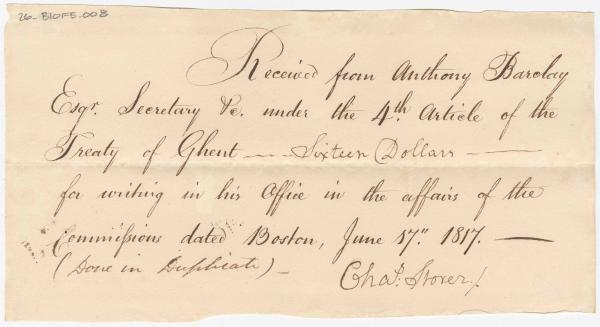 26-B10F5-008
Received from Anthony Barclay
Esqr. Secretary &c. under the 4th. Article of the
Treaty of Ghent — Sixteen Dollars —
for writing in his Office in the affairs of the
Commissions dated Boston, June 17th. 1817. —
(Done in Duplicate) — Chas. Storer./